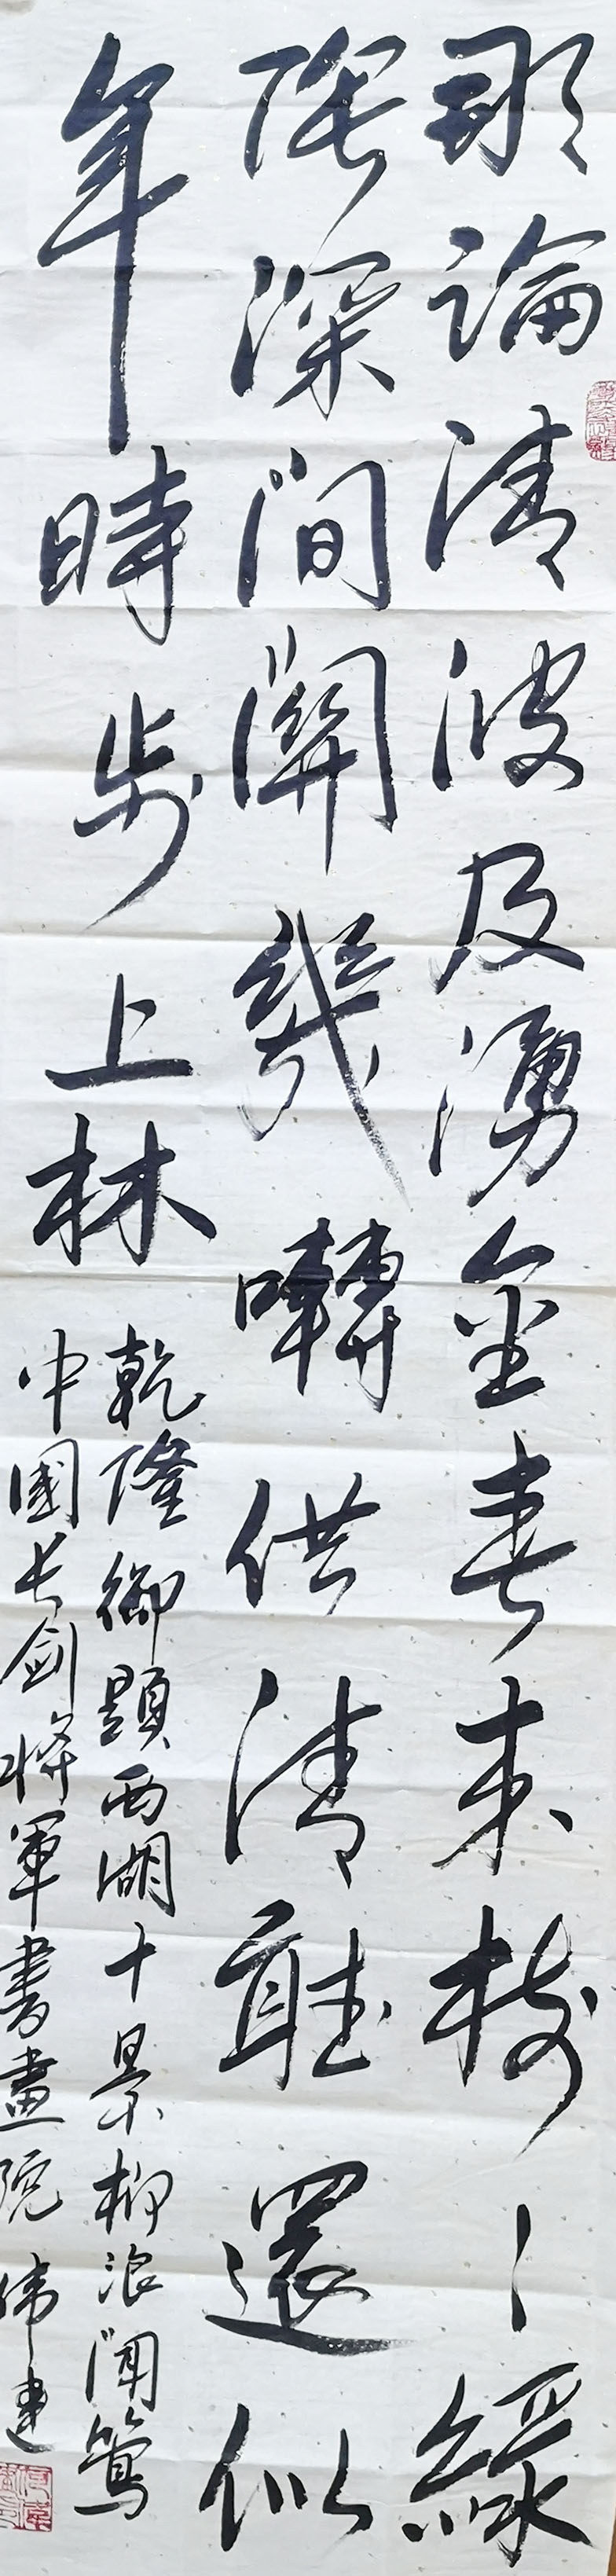 那論清波及湧金春来樹〻綠
陰深間關幾囀供清聽還似
年時步上林
乾隆御題西湖十景柳浪聞鶯
中國长劍將軍書畫院偉建